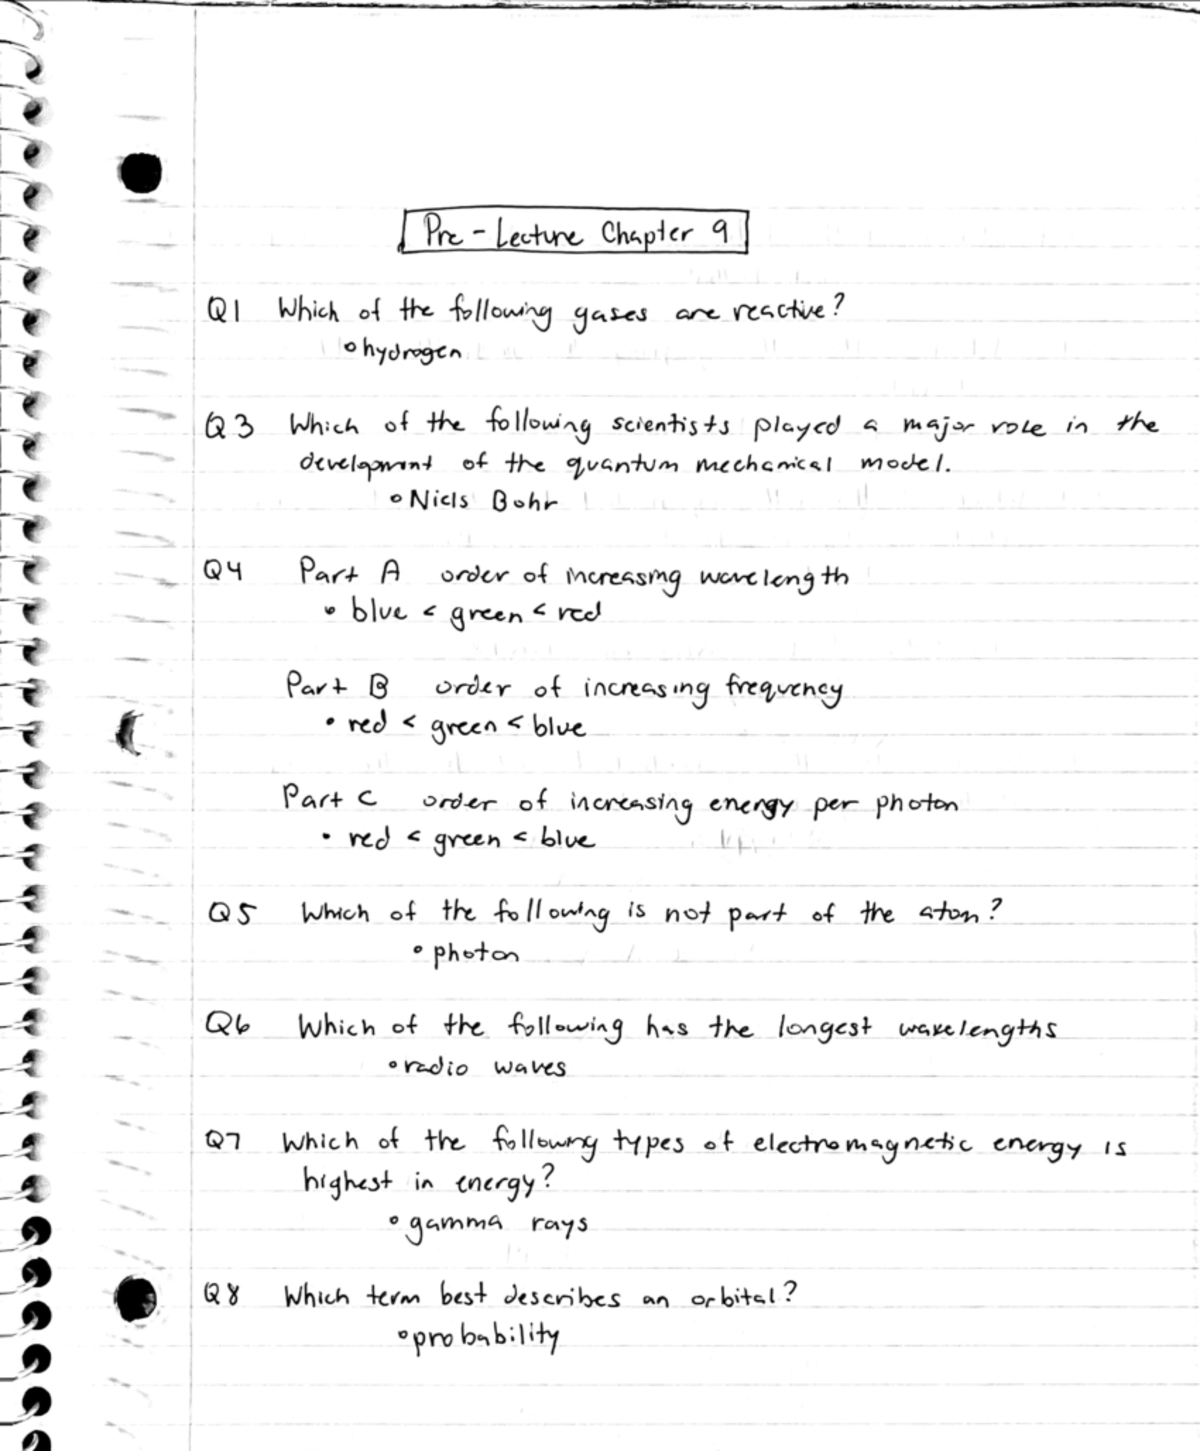 Pre - Lecture Chapter 9
Q1 Which of the following gases are reactive?
• hydrogen
Q3 Which of the following scientists played a major role in the
development of the quantum mechanical model.
• Niels Bohr
Q4 Part A order of increasing wavelength
• blue < green < red
Part B order of increasing frequency
• red < green < blue
Part C order of increasing energy per photon
• red < green < blue
Q5 Which of the following is not part of the atom?
• photon
Q6 Which of the following has the longest wavelengths
• radio waves
Q7 Which of the following types of electromagnetic energy is
highest in energy?
• gamma rays
Q8 Which term best describes an orbital?
• probability